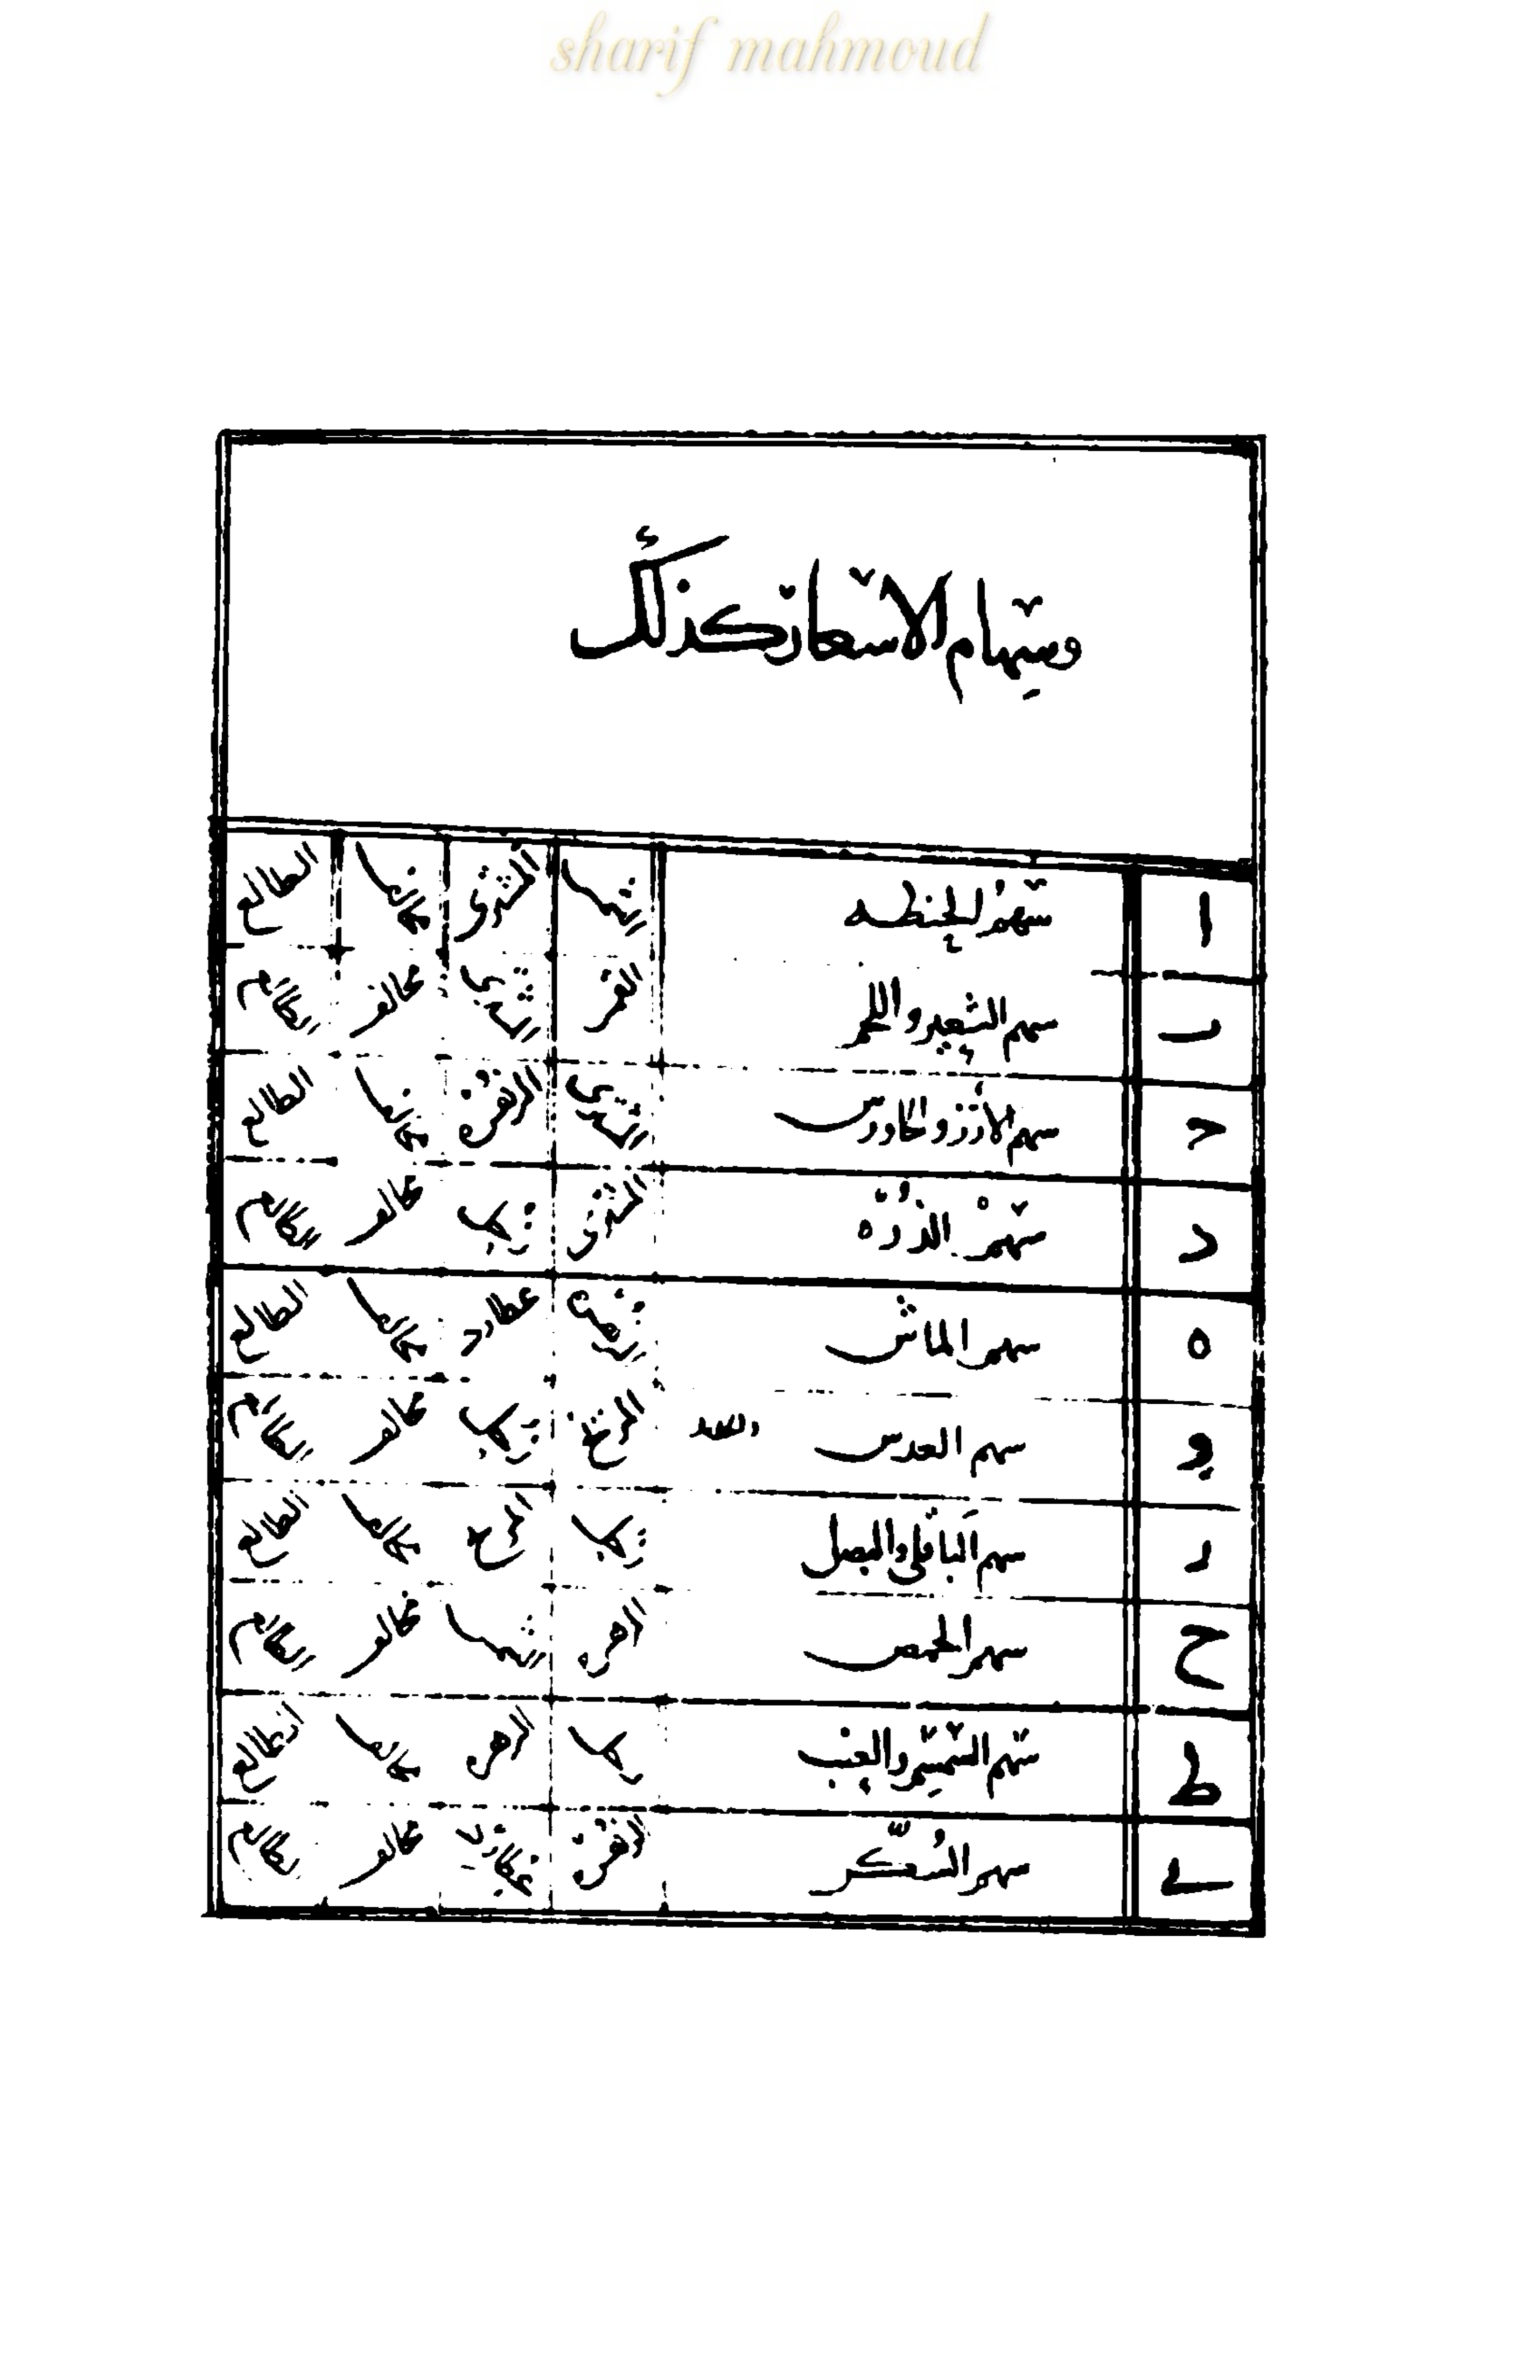 sharif mahmoud
وسهام الاسعار كذلك
ا سهم الحنطه الشمس المشترى مخالف الطالع
ب سهم الشعير واللحم القمر المشترى مخالف الطالع
ح سهم الأرز والجاورس المشترى الزهرة مخالف الطالع
د سهم الذرة المشترى زحل مخالف الطالع
ه سهم الماش الزهرة عطارد مخالف الطالع
و سهم العدس المريخ زحل مخالف الطالع
ر سهم الباقلى والبصل زحل المريخ مخالف الطالع
ح سهم الحمص الزهره الشمس مخالف الطالع
ط سهم السمسم والعنب زحل الزهره مخالف الطالع
ى سهم السكر الزهرة عطارد مخالف الطالع